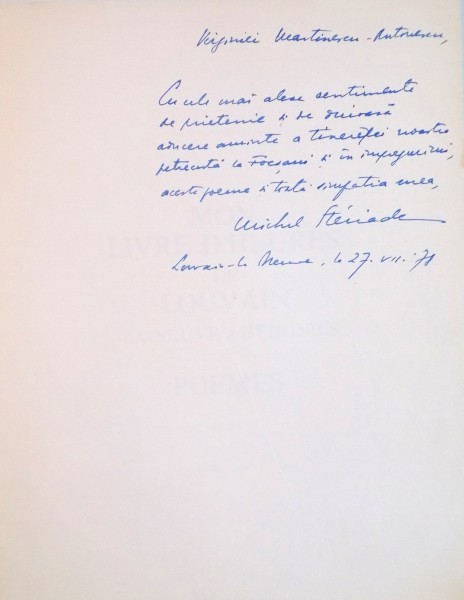 Virginiei Martinescu-Antonescu,
Cu cele mai alese sentimente
de prietenie și de duioasă
aducere aminte a tinereței noastre
petrecută la Focșani și în împrejurimi,
aceste poeme și toată simpatia mea,
Michel Stériade
Louvain-la-Neuve, le 27.VII.'78
LIVRE D'HEURES
LOUVAIN
POÈMES